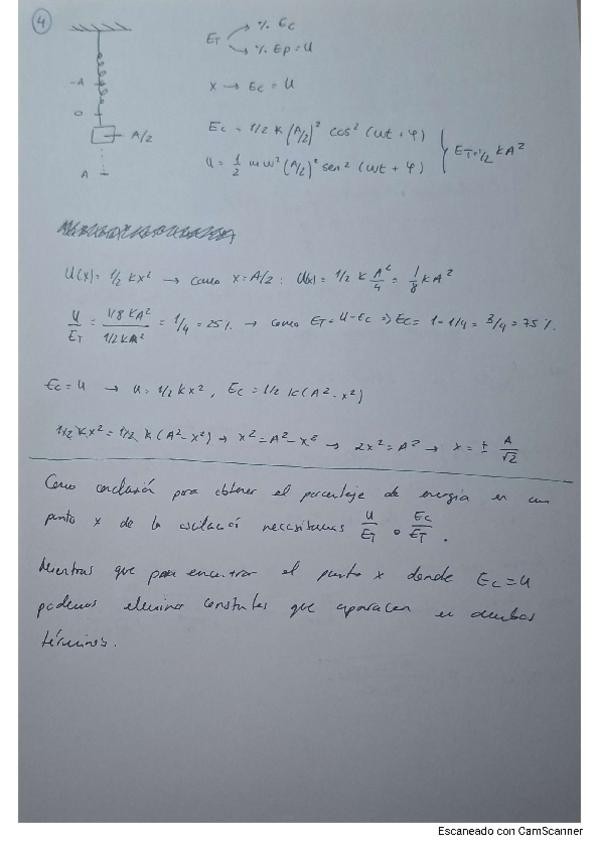 4
% Ec
ET
% Ep = U
-A
x → Ec = U
0
A/2
Ec = 1/2 K (A/2)² cos² (ωt + φ)
ET = 1/2 KA²
U = 1/2 m ω² (A/2)² sen² (ωt + φ)
A
U(x) = 1/2 Kx² → como x = A/2 : U(x) = 1/2 K A²/4 = 1/8 KA²
U/ET = 1/8 KA² / 1/2 KA² = 1/4 = 25 %. → como ET = U - Ec ⇒ Ec = 1 - 1/4 = 3/4 = 75 %.
Ec = U → U = 1/2 Kx² , Ec = 1/2 K (A² - x²)
1/2 Kx² = 1/2 K (A² - x²) → x² = A² - x² → 2x² = A² → x = ± A/√2
Como conclusión para obtener el porcentaje de energía en un
punto x de la oscilación necesitamos U/ET o Ec/ET .
Mientras que para encontrar el punto x donde Ec = U
podemos eliminar constantes que aparecen en ambos
términos.
Escaneado con CamScanner